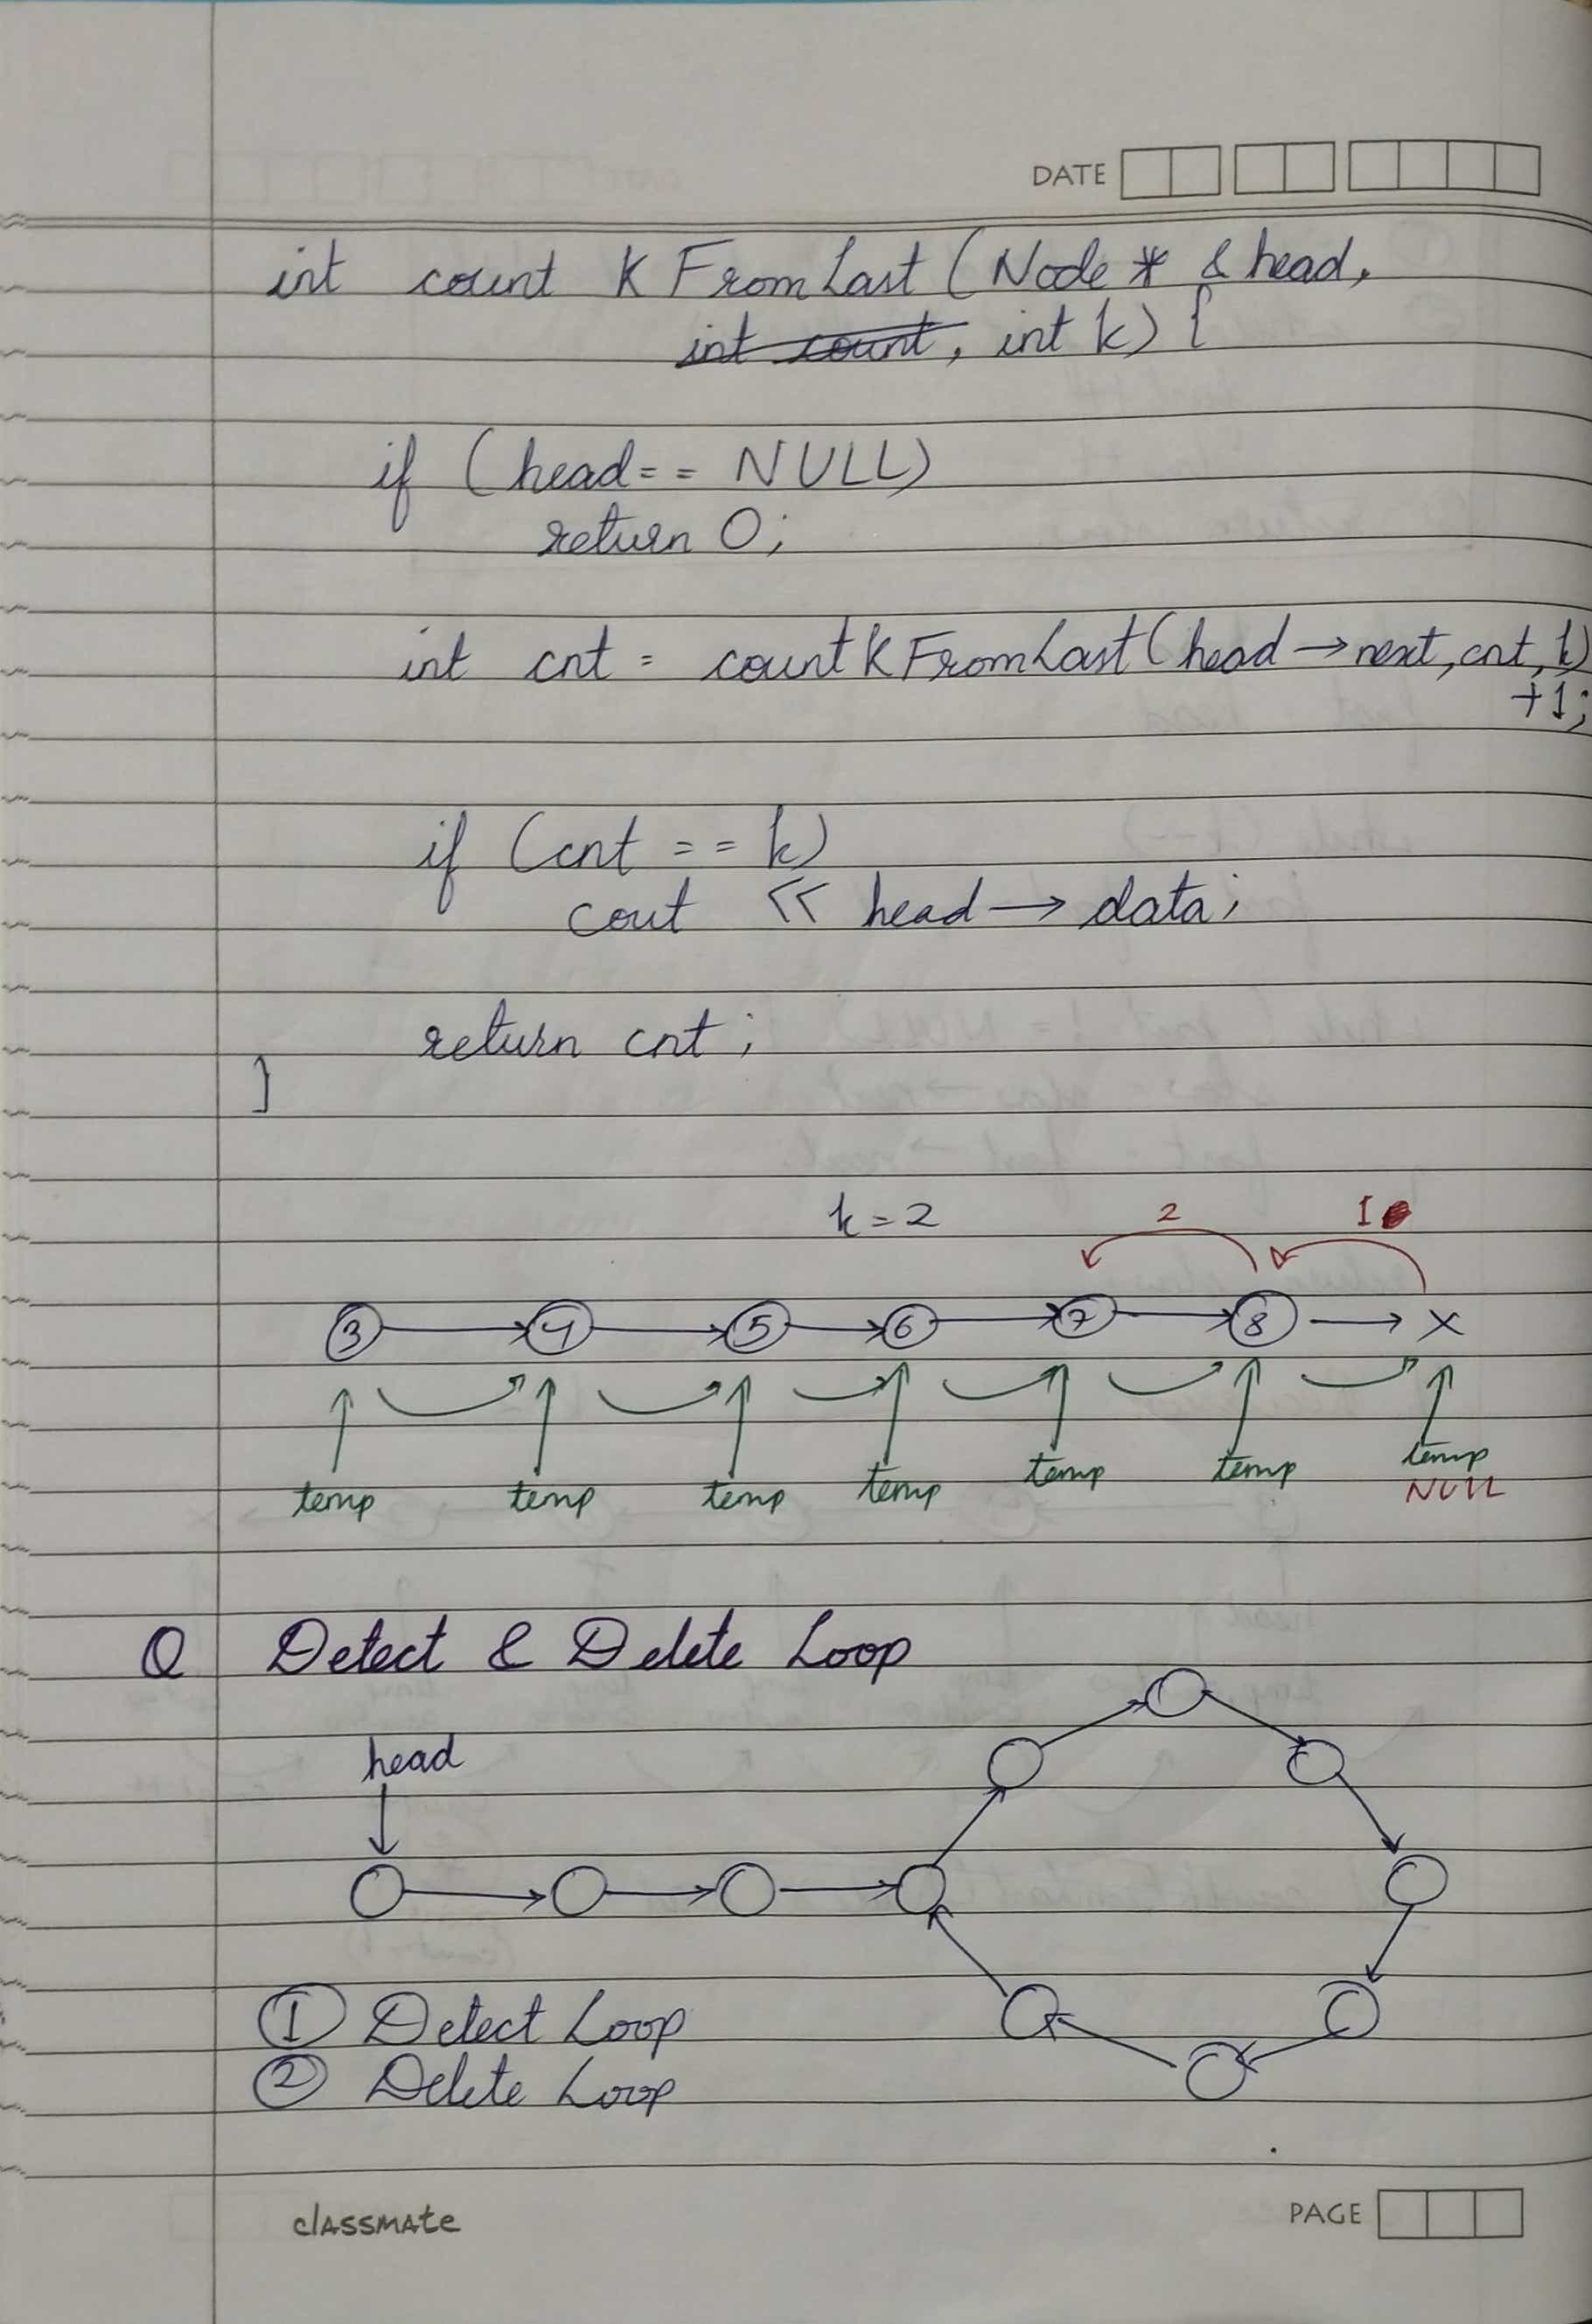 DATE
int count K From Last (Node * & head,
int count, int k) {
if (head == NULL)
return 0;
int cnt = count K From Last (head → next, cnt, k)
+1;
if (cnt == k)
cout << head → data;
return cnt;
}
k = 2
2 1
3 4 5 6 7 8 X
temp temp temp temp temp temp temp
NULL
Q Detect & Delete Loop
head
① Detect Loop
② Delete Loop
classmate PAGE